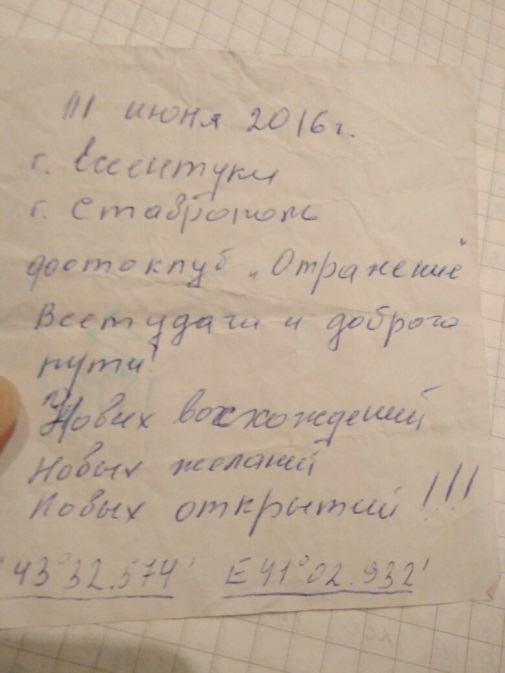 III июня 2016г.
г. Ессентуки
г. Ставрополь
фотоклуб "Отражение"
Всем удачи и доброго
пути!
Новых восхождений
Новых желаний
Новых открытий !!!
43°32.574' E 41°02.932'